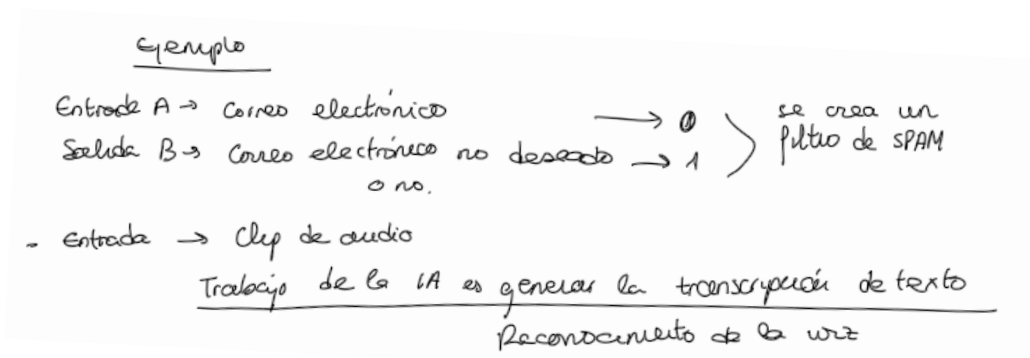 Ejemplo
Entrada A → Correo electrónico → 0 se crea un
Salida B → Correo electrónico no deseado → 1 filtro de SPAM
o no.
- Entrada → Clip de audio
Trabajo de la IA es generar la transcripción de texto
Reconocimiento de la voz